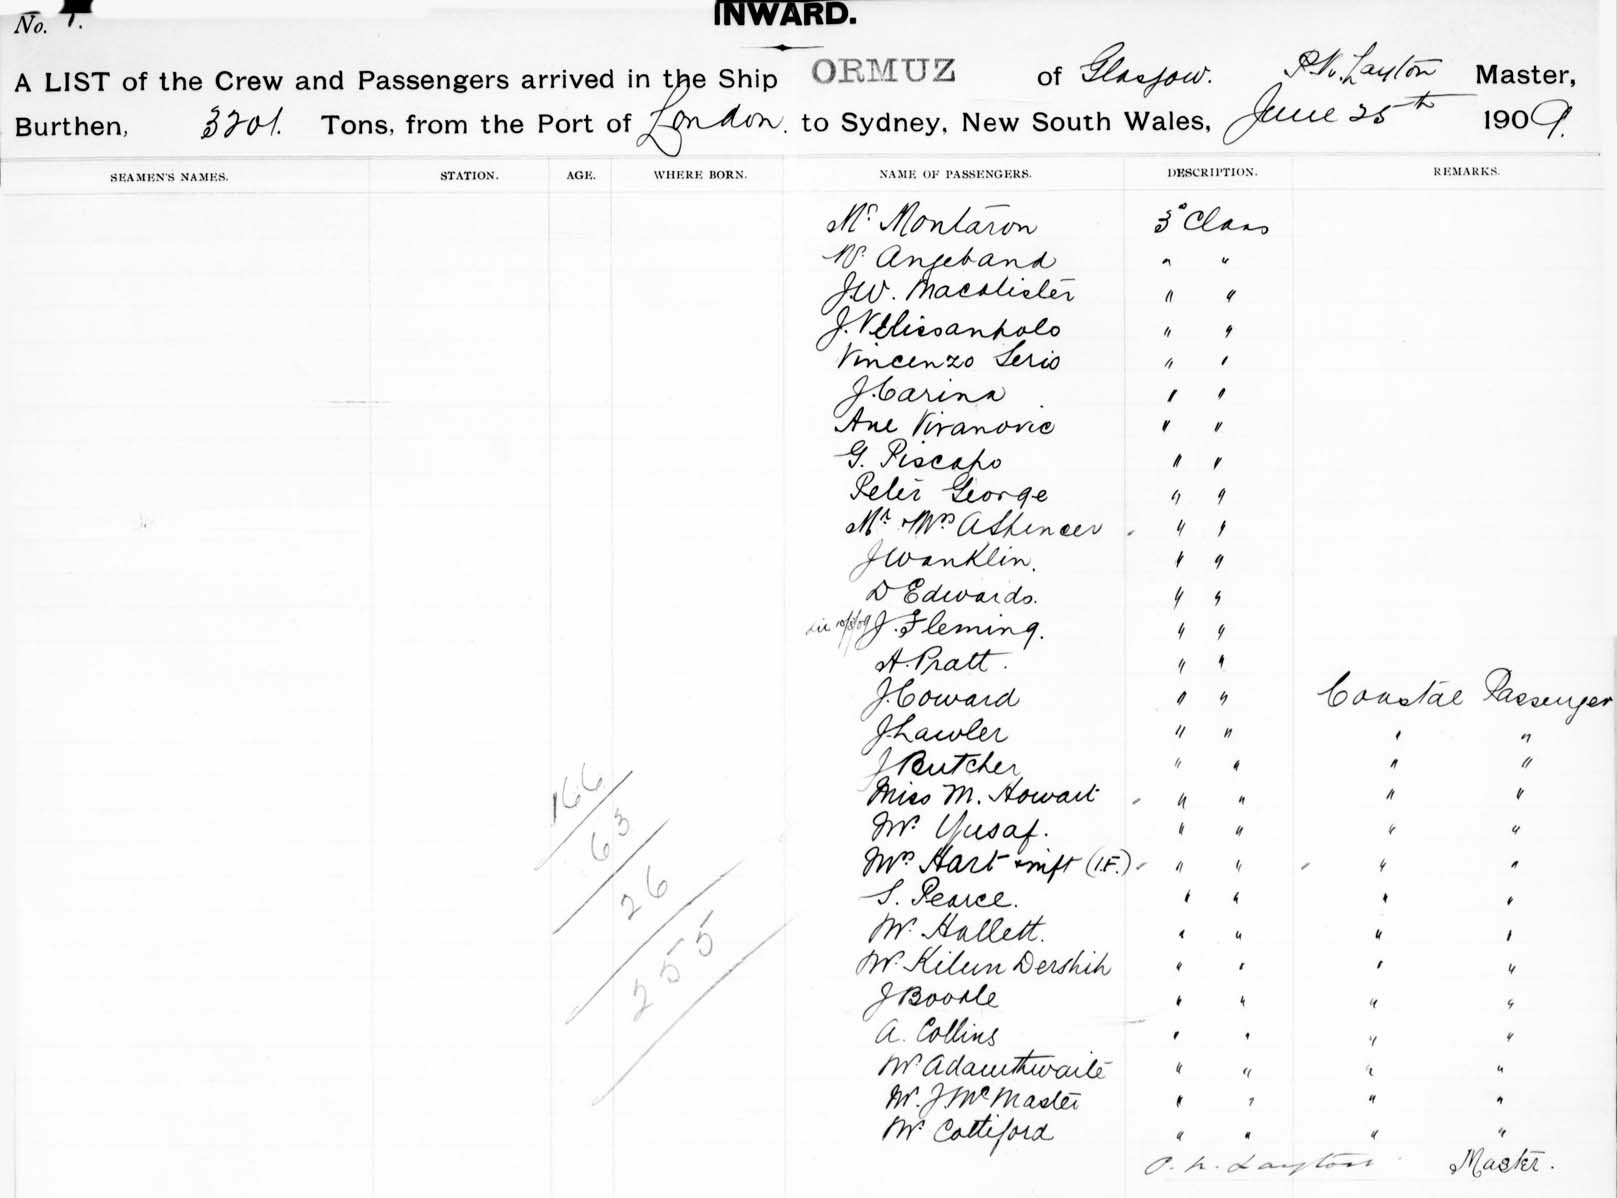 No. 1.
INWARD.
A LIST of the Crew and Passengers arrived in the Ship ORMUZ of Glasgow. P.N. Layton Master,
Burthen, 3201. Tons, from the Port of London. to Sydney, New South Wales, June 25th 1909.
SEAMEN'S NAMES. STATION. AGE. WHERE BORN. NAME OF PASSENGERS. DESCRIPTION. REMARKS.
Mr Montaron 3° Class
W. Angeband " "
J.W. Macalister " "
J. " "
Vincenzo Serio " "
J. Carina " "
Ane Vivanovic " "
G. Piscapo " "
Peter George " "
Mr & Mrs A Spencer " "
J Wanklin. " "
D Edwards. " "
J. Fleming. " "
A. Pratt. " "
J. Coward " " Coastal Passenger
J Lawler " " " "
J Butcher " " " "
Miss M. Howart " " " "
Mr. Yusaf. " " " "
Mrs Hart & inft (1.F.) " " " "
S. Pearce. " " " "
Mr. Hallett. " " " "
Mr. Dershih " " " "
J Boodle " " " "
A. Collins " " " "
Mr. Adamthwaite " " " "
Mr. J McMaster " " " "
Mr Cottiford " " " "
P. N. Layton Master.
166
63
26
255